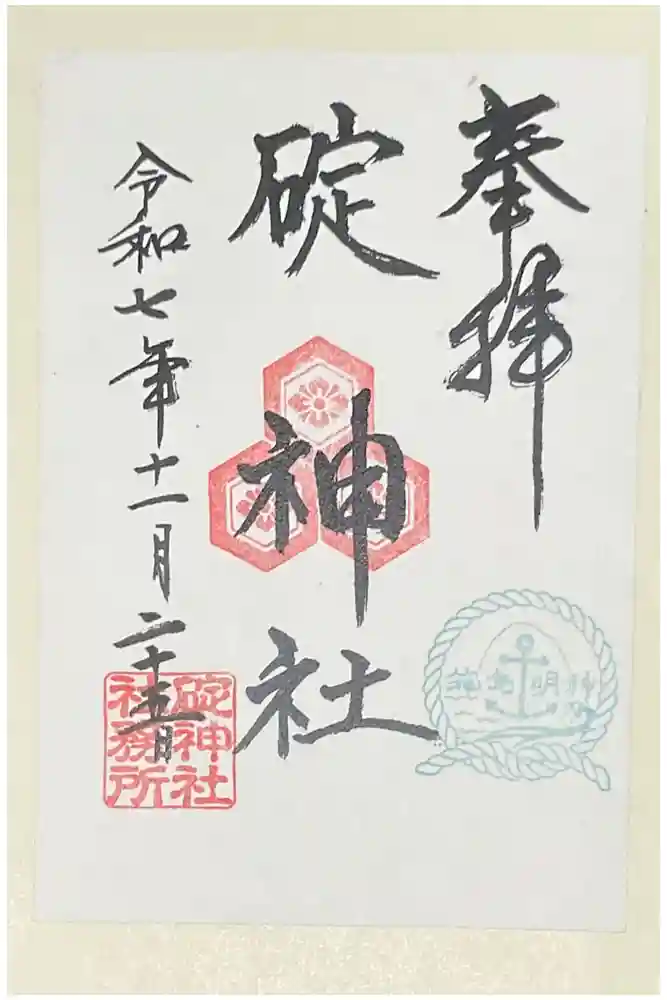 奉拝
碇神社
令和七年十一月二十五日
碇神社
社務所